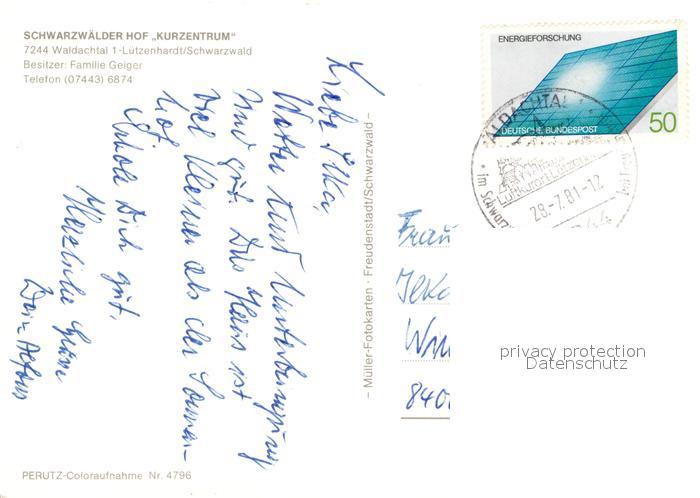 SCHWARZWÄLDER HOF „KURZENTRUM“
7244 Waldachtal 1-Lützenhardt/Schwarzwald
Besitzer: Familie Geiger
Telefon (07443) 6874
Liebe Ilka,
Wetter und Unterbringung
sind gut. Das Haus ist
viel kleiner als der Sonnen-
hof.
Erhole Dich gut.
Herzliche Grüße
Dein
PERUTZ-Coloraufnahme Nr. 4796
– Müller-Fotokarten · Freudenstadt/Schwarzwald –
ENERGIEFORSCHUNG
DEUTSCHE BUNDESPOST
50
WALDACHTAL
Luftkurort Lützenh
im Schwarz
28.-7.81-12
7244
Frau
Ilka
840
privacy protection
Datenschutz